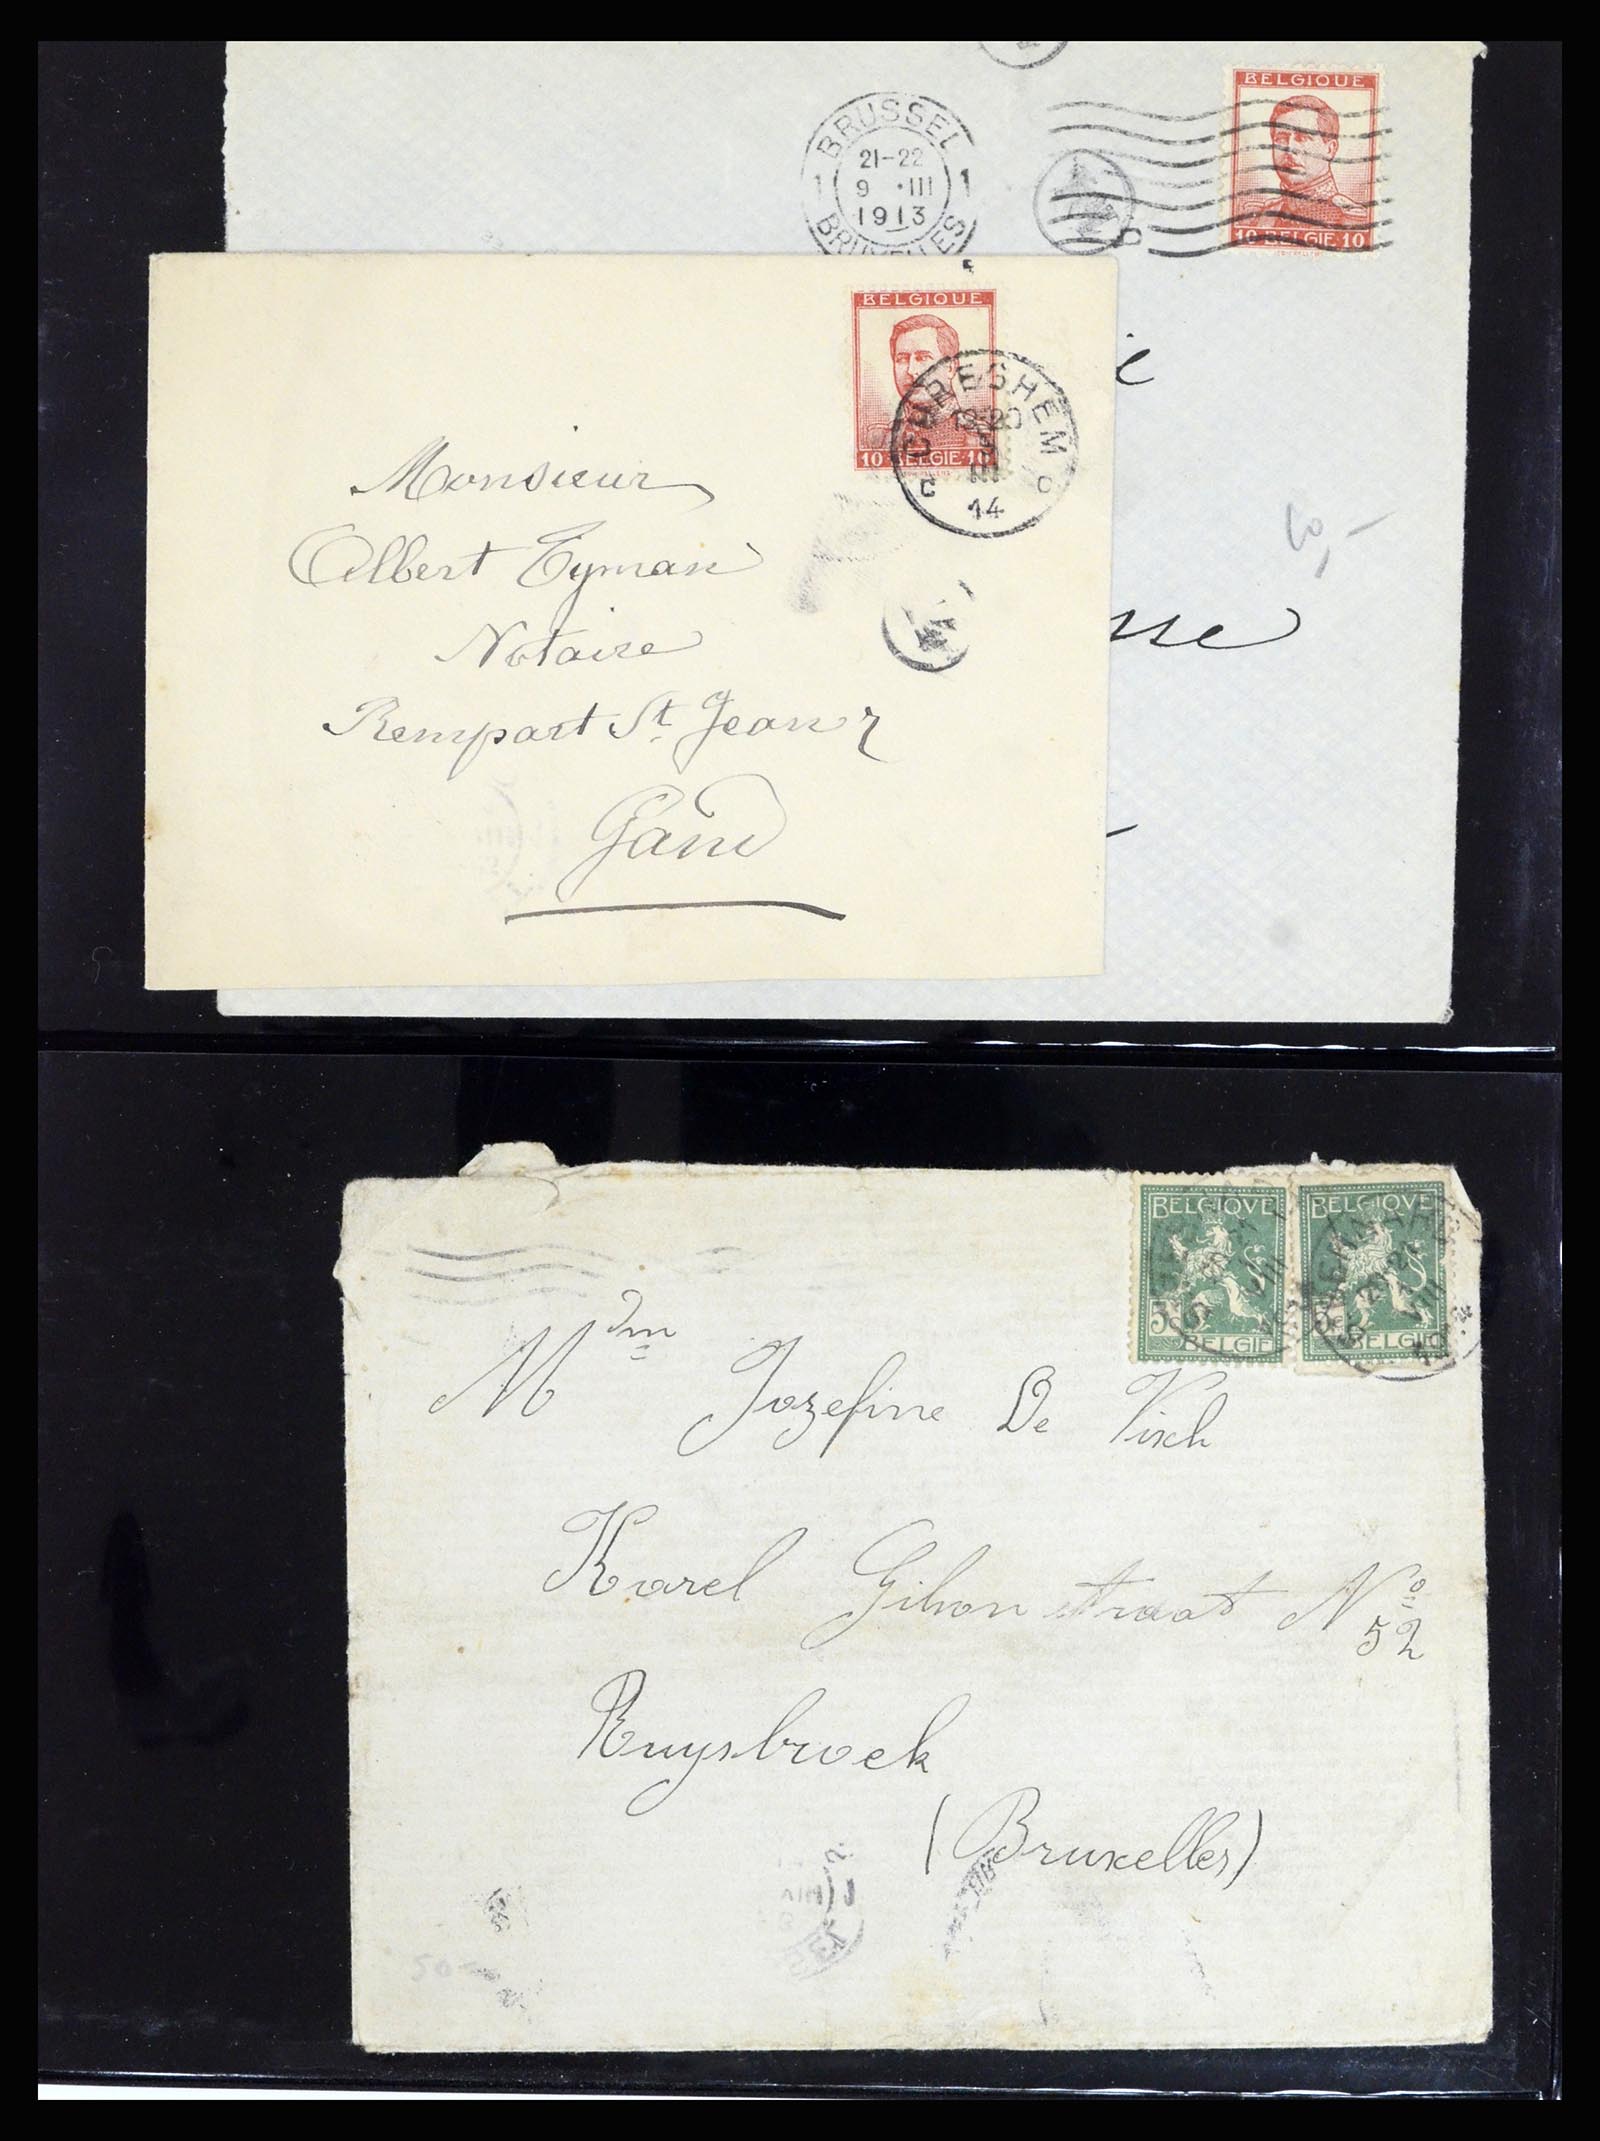 BRUSSEL
21-22
1 9 •III 1
1913
BRUXELLES
BELGIQUE
10 BELGIE 10
BELGIQUE
10 BELGIE 10
CUREGHEM
19-20
III
14
C C
Monsieur
Albert Eyman
Notaire
Rempart St Jean 7
Gand
sse
10,-
BELGIQVE
5
BELGIE
BELGIQVE
BELGIE
VIII
Mdm Jozefine De Visch
Karel Gilson straat No
52
Ruysbroek
(Bruxelles)
50-